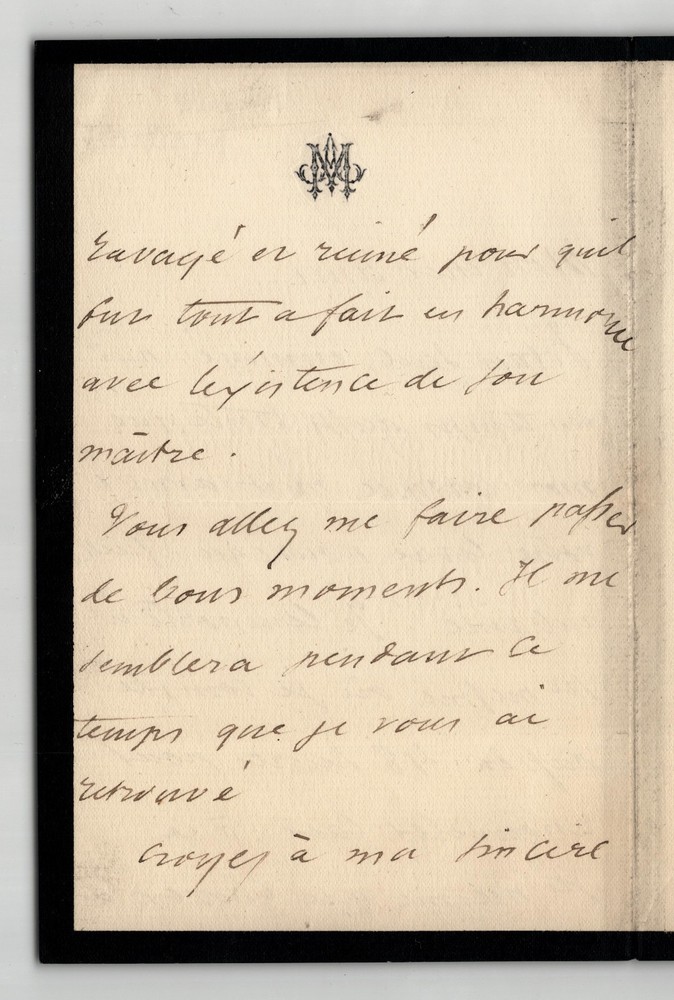 ravagé et ruiné pour quil
fut tout a fait en harmonie
avec l'existence de son
maître.
Vous allez me faire passer
de bons moments. Il me
semblera pendant ce
temps que je vous ai
retrouvé
croyez à ma sincère